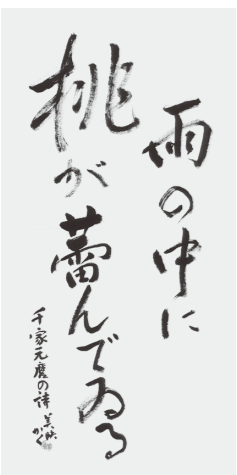 雨の中に
桃が蕾んでゐる
千家元麿の詩 美
かく